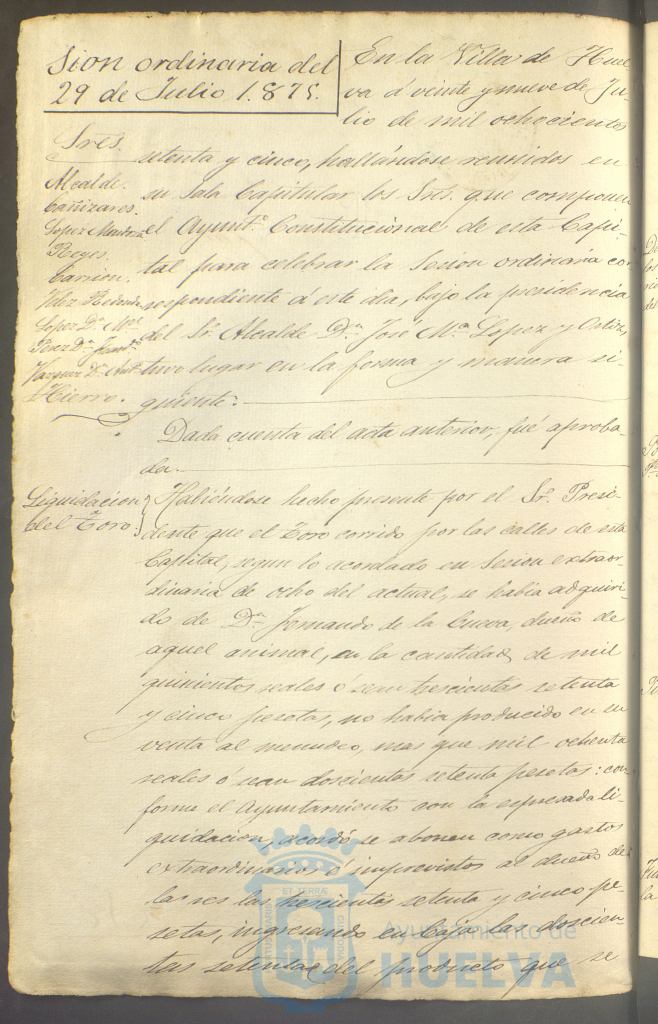 Sion ordinaria del
29 de Julio 1.875.
Sres.
Alcalde.
Cañizares.
Lopez Martinez
Reyes.
Carrion.
Velez
Lopez Dn. Ma.
Perez Dn.
Vazquez Dn. Anto.
Hierro.
En la Villa de Huel
va á veinte y nueve de Ju-
lio de mil ochocientos
setenta y cinco, hallándose reunidos en
su Sala Capitular los Sres. que componen
el Ayunto. Constitucional de esta Capi-
tal para celebrar la Sesion ordinaria co-
rrespondiente á este dia, bajo la presidencia
del Sr. Alcalde Dn. José Ma. Lopez y Ortiz,
tuvo lugar en la forma y manera si-
guiente:
Dada cuenta del acta anterior, fué aproba-
da.
Liquidacion
del Toro.
Habiéndose hecho presente por el Sr. Presi-
dente que el Toro corrido por las calles de esta
Capital, segun lo acordado en Sesion extraor-
dinaria de ocho del actual, se habia adquiri-
do de Dn. Fernando de la Cueva, dueño de
aquel animal, en la cantidad de mil
quinientos reales ó sean trescientas setenta
y cinco pesetas, no habia producido en su
venta al menudeo, mas que mil ochenta
reales ó sean doscientas setenta pesetas: con-
forme el Ayuntamiento con la espresada li-
quidacion, acordó se abonen como gastos
extraordinarios ó imprevistos al dueño de
la res las trescientas setenta y cinco pe-
setas, ingresando en Caja las doscien-
tas setenta del producto que se
ET TERRÆ
Ayuntamiento de
HUELVA